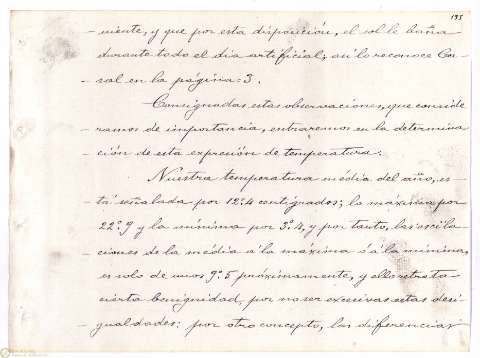 195
niente, y que por esta disposición, el sol le baña
durante todo el dia artificial; así lo reconoce Co-
ral en la página: 3.
Consignadas estas observaciones, que conside
ramos de importancia, entraremos en la determina
ción de esta expresión de temperatura.
Nuestra temperatura média del año, es-
tá señalada por 12º4 centigrados; la máxima por
22º9 y la mínima por 3º4, y por tanto, las oscila
ciones de la média á la máxima ó á la mínima,
es solo de unos 9º5 próximamente, y ello retrata
cierta benignidad, por no ser excesivas estas desi-
gualdades: por otro concepto, las diferencias